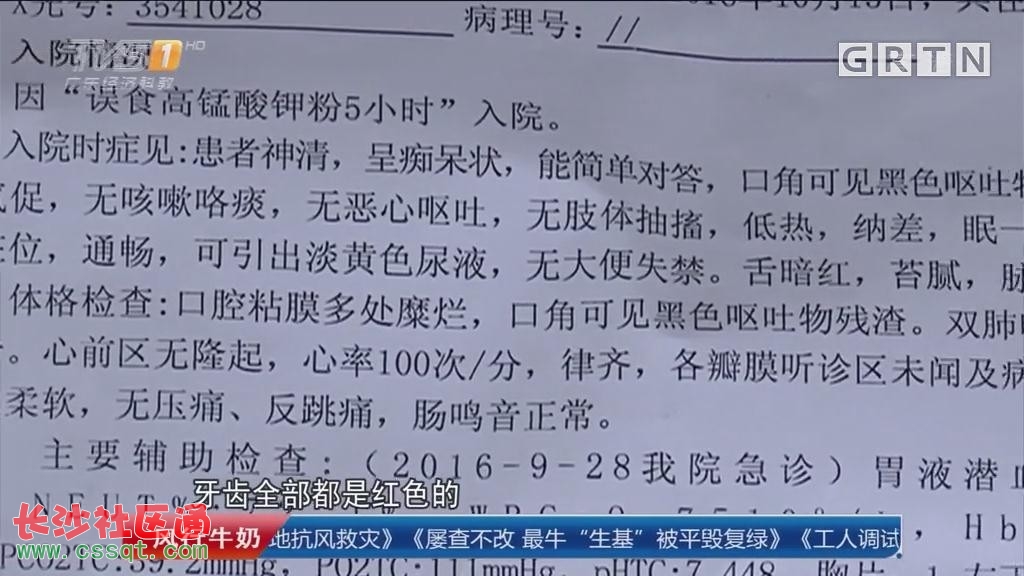 元号：3541028
病理号：//
2016年10月13日，
HD
1
广东经济科教
GRTN
入院情况
因“误食高锰酸钾粉5小时”入院。
入院时症见：患者神清，呈痴呆状，能简单对答，口角可见黑色呕吐物
气促，无咳嗽咯痰，无恶心呕吐，无肢体抽搐，低热，纳差，眠一
在位，通畅，可引出淡黄色尿液，无大便失禁。舌暗红，苔腻，脉
体格检查：口腔粘膜多处糜烂，口角可见黑色呕吐物残渣。双肺呼
。心前区无隆起，心率100次/分，律齐，各瓣膜听诊区未闻及病
柔软，无压痛、反跳痛，肠鸣音正常。
主要辅助检查：（2016-9-28我院急诊）胃液潜血
牙齿全部都是红色的
NEUT%
Hb
长沙社区通
www.cssqt.com
风行牛奶
地抗风救灾》《屡查不改 最牛“生基”被平毁复绿》《工人调试
PCO2TC:39.2mmHg, PO2TC:111mmHg, pHTC:7.448, 胸片